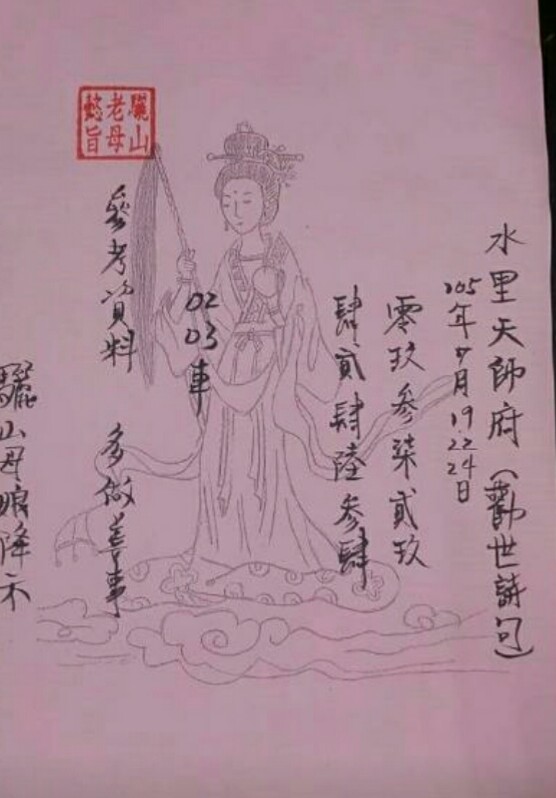 水里天師府(勸世詩句)
105年十月19 22 24日
零玖參柒貳玖
肆貳肆陸參肆
02 03車
參考資料 多做善事
驪山老母懿旨
驪山母娘降示